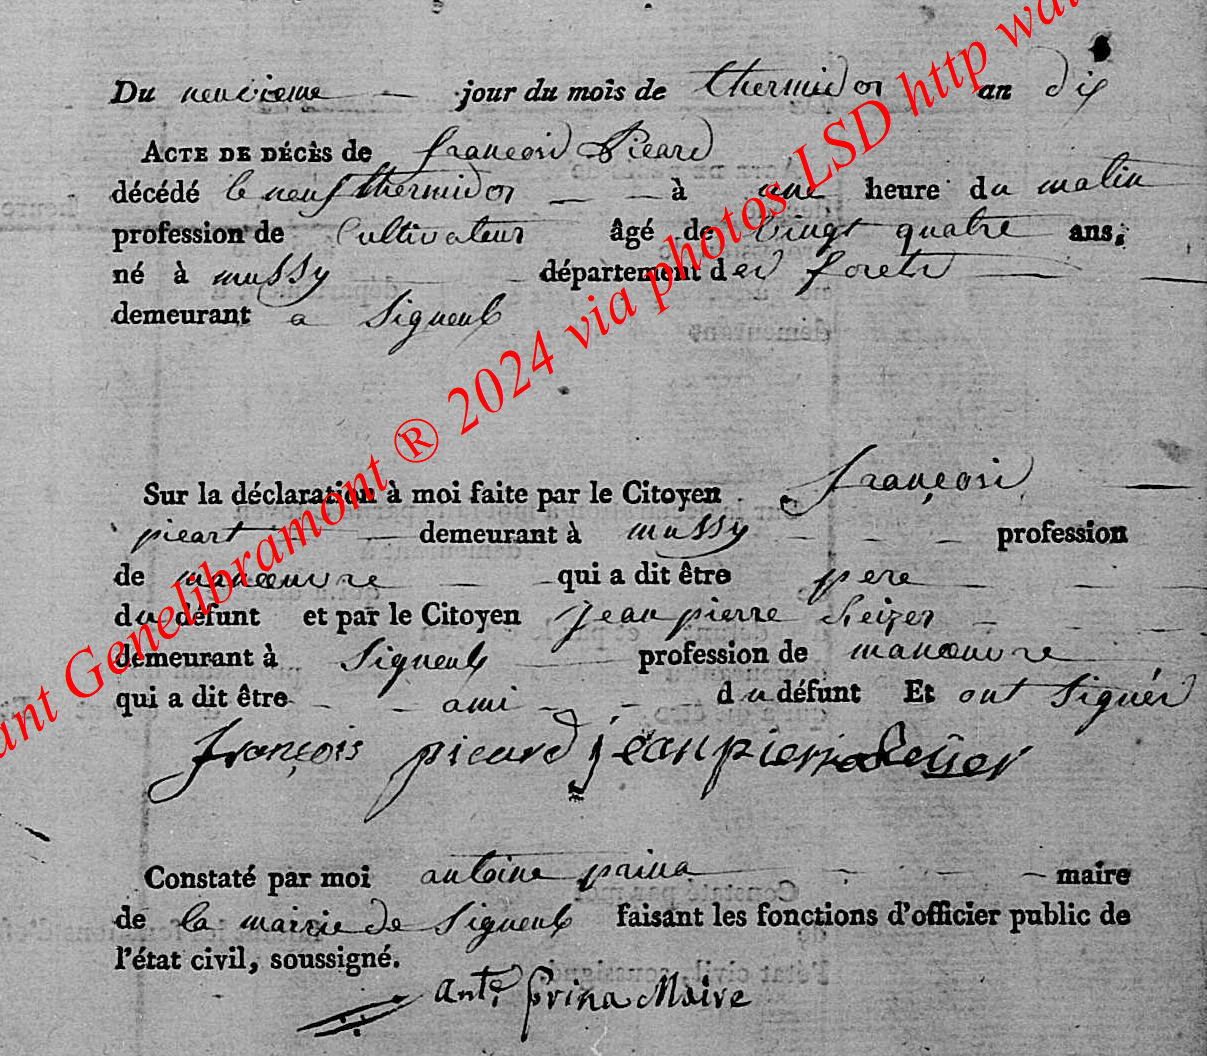 Du neuvieme jour du mois de thermidor an dix
ACTE DE DÉCÈS de françois Picard
décédé le neuf thermidor à une heure du matin
profession de Cultivateur âgé de vingt quatre ans,
né à mussy département des forets
demeurant a Signeulx
Sur la déclaration à moi faite par le Citoyen françois
picart demeurant à mussy profession
de manœuvre qui a dit être pere
du défunt et par le Citoyen jean pierre
demeurant à Signeulx profession de manœuvre
qui a dit être ami du défunt Et ont signés
françois picard jean pierre
Constaté par moi antoine prina maire
de la mairie de Signeulx faisant les fonctions d'officier public de
l'état civil, soussigné.
ant. prina Maire
ant Genelibramont ® 2024 via photos LSD http wa